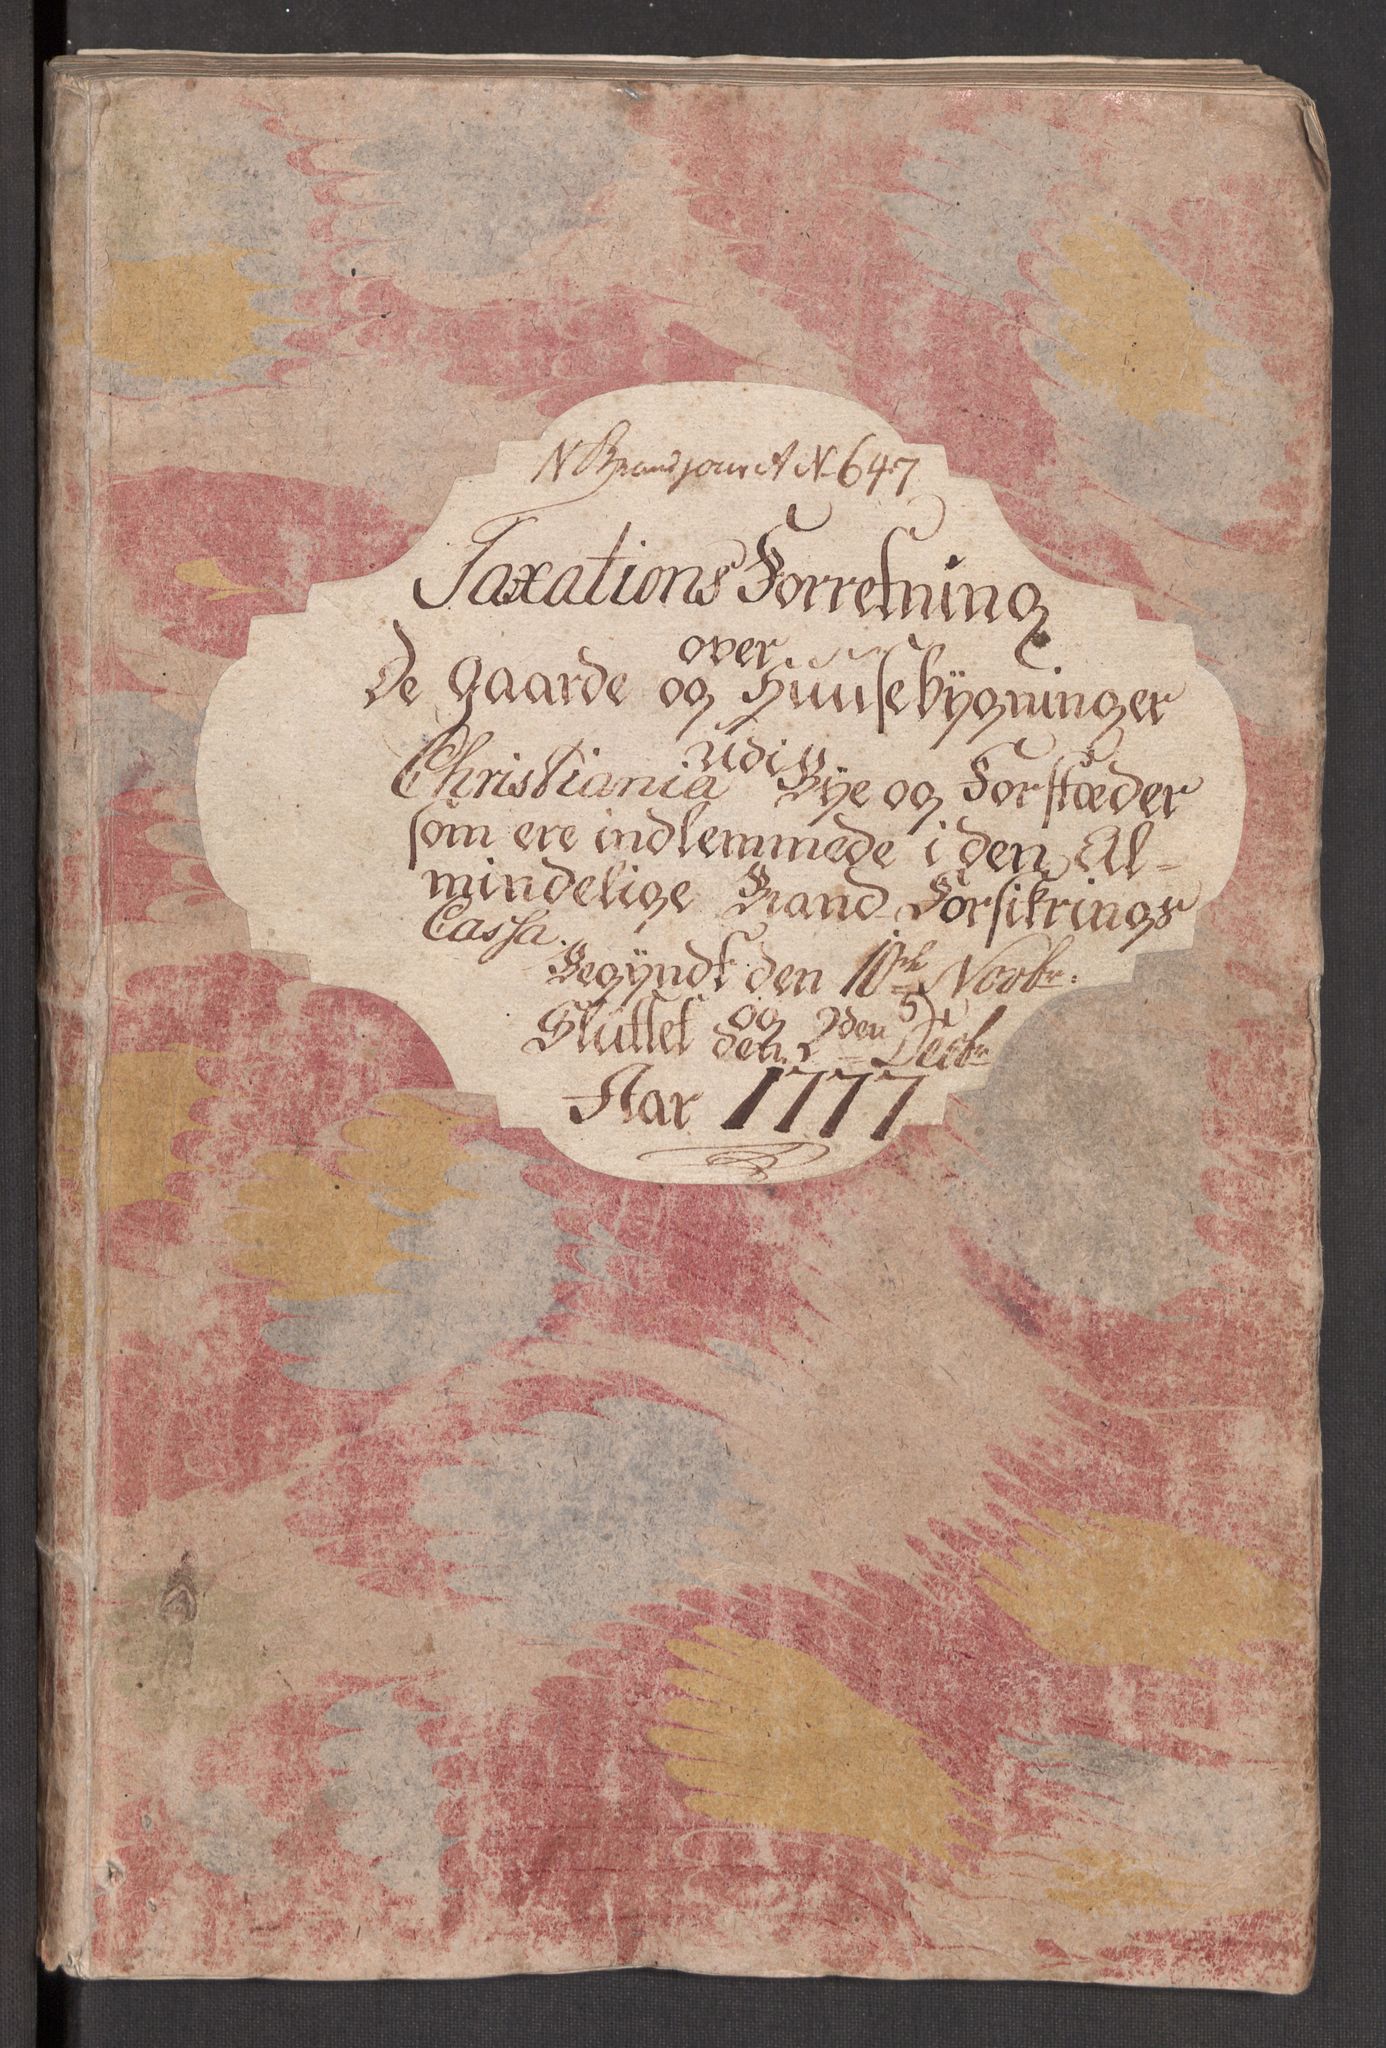 N Brandjour A No 647
Taxations Forretning
over
De gaarde og Huusebygninger
udi
Christiania Bye og Forstæder
som ere indlemmede i den Al-
mindelige Brand Forsikrings
Cassa.
Begyndt den 10de Novbr.
og
Sluttet den 2den Decbr
Aar 1777